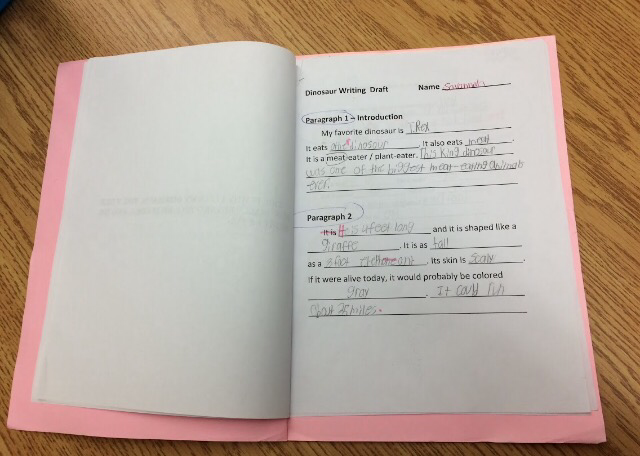 Dinosaur Writing Draft Name Savannah
Paragraph 1 – Introduction
My favorite dinosaur is T.Rex
It eats other dinosaur . It also eats meat .
It is a meat-eater / plant-eater. This King dinosaur
was one of the biggest meat-eating animals
ever.
Paragraph 2
It is It is 4 feet long and it is shaped like a
giraffe . It is as tall
as a . Its skin is Scaly .
If it were alive today, it would probably be colored
gray . It could run
about 25 miles.